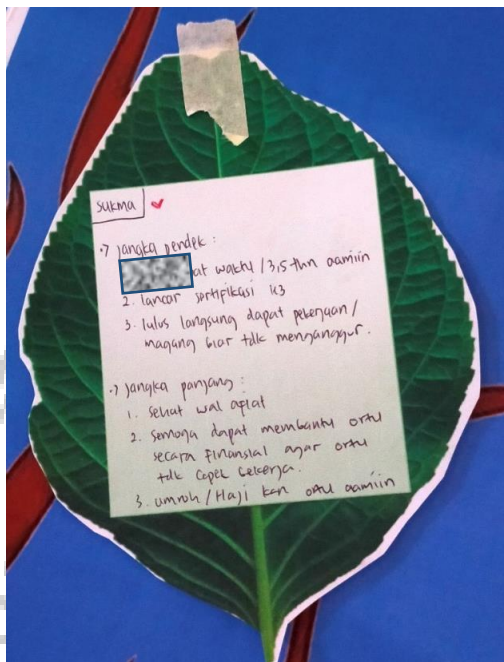 Sukma
→ Jangka pendek :
at waktu / 3,5 thn aamiin
2. lancar sertifikasi k3
3. lulus langsung dapat pekerjaan /
magang biar tdk menganggur.
→ Jangka panjang :
1. Sehat wal afiat
2. Semoga dapat membantu ortu
secara finansial agar ortu
tdk capek bekerja.
3. umroh / Haji kan ortu aamiin